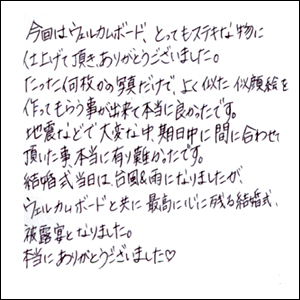 今回はウェルカムボード、とってもステキな物に
仕上げて頂き、ありがとうございました。
たった何枚かの写真だけで、よく似た似顔絵を
作ってもらう事が出来て本当に良かったです。
地震などで大変な中、期日中に間に合わせて
頂いた事、本当に有り難かったです。
結婚式当日は、台風&雨になりましたが、
ウェルカムボードと共に最高に心に残る結婚式、
披露宴となりました。
本当にありがとうございました♡